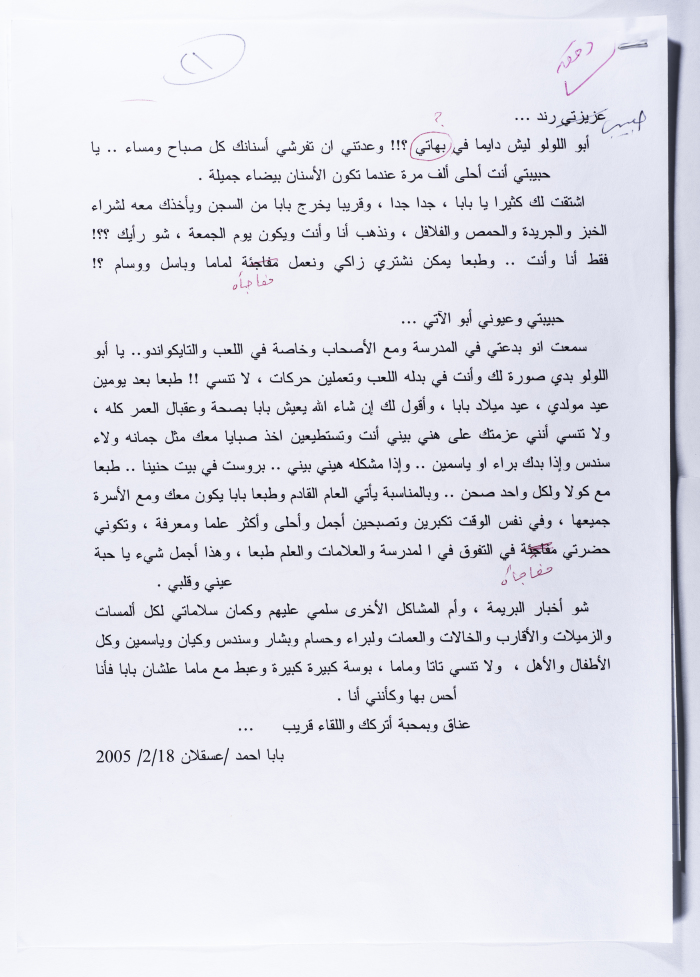 ٢١
دققه
حبيبتي
عزيزتي رند ...
؟
أبو اللولو ليش دايما في بهاتي ؟!! وعدتني ان تفرشي أسنانك كل صباح ومساء .. يا
حبيبتي أنت أحلى ألف مرة عندما تكون الأسنان بيضاء جميلة .
اشتقت لك كثيرا يا بابا ، جدا جدا ، وقريبا يخرج بابا من السجن ويأخذك معه لشراء
الخبز والجريدة والحمص والفلافل ، ونذهب أنا وأنت ويكون يوم الجمعة ، شو رأيك ؟؟!
فقط أنا وأنت .. وطبعا يمكن نشتري زاكي ونعمل مفاجئة لماما وباسل ووسام ؟!
مفاجأه
حبيبتي وعيوني أبو الآتي ...
سمعت انو بدعتي في المدرسة ومع الأصحاب وخاصة في اللعب والتايكواندو.. يا أبو
اللولو بدي صورة لك وأنت في بدله اللعب وتعملين حركات ، لا تنسي !! طبعا بعد يومين
عيد مولدي ، عيد ميلاد بابا ، وأقول لك إن شاء الله يعيش بابا بصحة وعقبال العمر كله ،
ولا تنسي أنني عزمتك على هني بيني أنت وتستطيعين اخذ صبايا معك مثل جمانه ولاء
سندس وإذا بدك براء او ياسمين .. وإذا مشكله هيني بيني .. بروست في بيت حنينا .. طبعا
مع كولا ولكل واحد صحن .. وبالمناسبة يأتي العام القادم وطبعا بابا يكون معك ومع الأسرة
جميعها ، وفي نفس الوقت تكبرين وتصبحين أجمل وأحلى وأكثر علما ومعرفة ، وتكوني
حضرتي مفاجئة في التفوق في ا لمدرسة والعلامات والعلم طبعا ، وهذا أجمل شيء يا حبة
مفاجأه
عيني وقلبي .
شو أخبار البريمة ، وأم المشاكل الأخرى سلمي عليهم وكمان سلاماتي لكل ألمسات
والزميلات والأقارب والخالات والعمات ولبراء وحسام وبشار وسندس وكيان وياسمين وكل
الأطفال والأهل ، ولا تنسي تاتا وماما ، بوسة كبيرة كبيرة وعبط مع ماما علشان بابا فأنا
أحس بها وكأنني أنا .
عناق وبمحبة أتركك واللقاء قريب ...
بابا احمد /عسقلان 18/2/ 2005